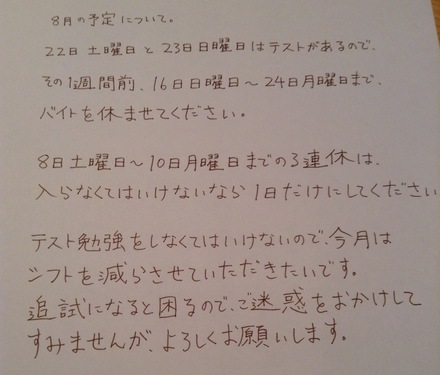 8月の予定について。
22日 土曜日と 23日日曜日はテストがあるので、
その1週間前、16日日曜日～24日月曜日まで、
バイトを休ませてください。
8日土曜日～10日月曜日までの3連休は、
入らなくてはいけないなら 1日だけにしてください
テスト勉強をしなくてはいけないので、今月は
シフトを減らさせていただきたいです。
追試になると困るので、ご迷惑をおかけして
すみませんが、よろしくお願いします。